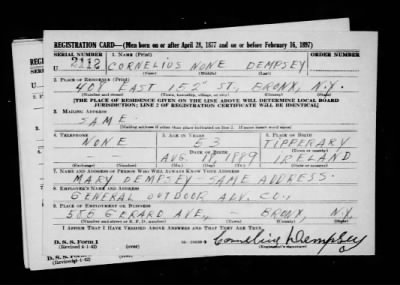 REGISTRATION CARD—(Men born on or after April 28, 1877 and on or before February 16, 1897)
SERIAL NUMBER 1. NAME (Print)
U 2112 CORNELIUS NONE DEMPSEY
(First) (Middle) (Last)
2. PLACE OF RESIDENCE (Print)
401 EAST 152 ST., BRONX, N.Y.
(Number and street) (Town, township, village, or city) (County) (State)
[THE PLACE OF RESIDENCE GIVEN ON THE LINE ABOVE WILL DETERMINE LOCAL BOARD
JURISDICTION; LINE 2 OF REGISTRATION CERTIFICATE WILL BE IDENTICAL]
3. MAILING ADDRESS
SAME
[Mailing address if other than place indicated on line 2. If same insert word same]
4. TELEPHONE 5. AGE IN YEARS 6. PLACE OF BIRTH
NONE 53 TIPPERARY
DATE OF BIRTH (Town or county)
AUG. 1889 IRELAND
(Exchange) (Number) (Mo.) (Day) (Yr.) (State or country)
7. NAME AND ADDRESS OF PERSON WHO WILL ALWAYS KNOW YOUR ADDRESS
MARY DEMPSEY - SAME ADDRESS.
8. EMPLOYER'S NAME AND ADDRESS
GENERAL OUTDOOR ADV. CO.,
9. PLACE OF EMPLOYMENT OR BUSINESS
585 GERARD AVE., — BRONX, N.Y.
(Number and street or R. F. D. number) (Town) (County) (State)
I AFFIRM THAT I HAVE VERIFIED ABOVE ANSWERS AND THAT THEY ARE TRUE.
D. S. S. Form 1
(Revised 4-1-42) Cornelius Dempsey
(Registrant's signature)
D. S. S. Form 1